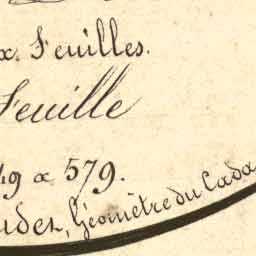 x Feuilles.
Feuille
49 x 579.
Géomètre du Cada